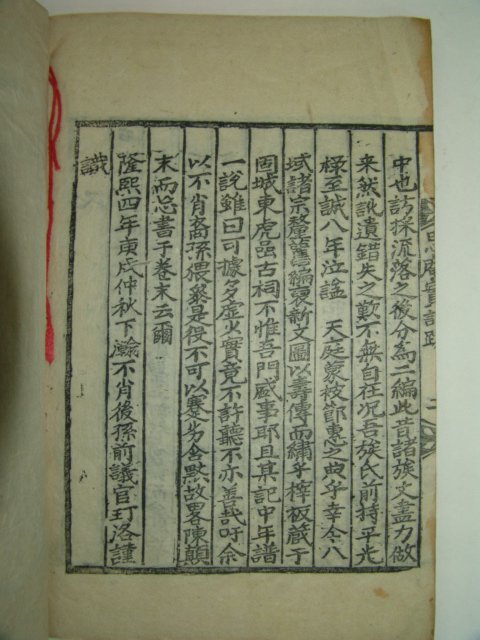 中也訪採流落之後分爲二編此昔諸族丈盡力做
来然訛遺錯失之歎不無自在况吾族氏前持平光
祿至誠八年泣謚　天庭蒙被節惠之典乎幸今八
域諸宗釐舊編更新文圖以壽傳而繡乎梓板藏于
固城東虎邑古祠不惟吾門盛事耶且某記中年譜
一說雖曰可據多虛少實竟不許聽不亦善哉吁余
以不肖裔孫猥參是役不可以蹇劣含默故畧陳顚
末而忘書于卷末云爾
隆熙四年庚戌仲秋下瀚不肖後孫前議官玎洛謹
識
實記跋